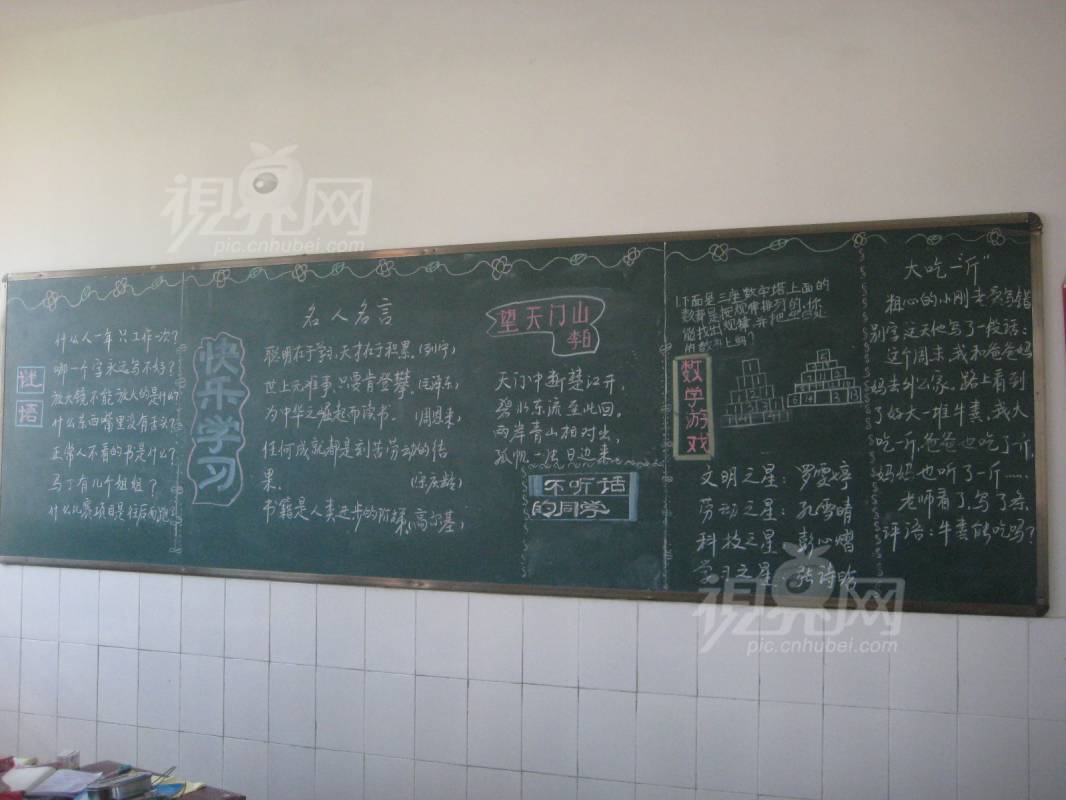 視界网
pic.cnhubei.com
谜
语
什么人一年只工作一次?
哪一个字永远写不好?
放大镜不能放大的是什么?
什么东西嘴里没有舌头?
正常人不看的书是什么?
马丁有几个姐姐?
什么比赛项目是往后跑?
快乐学习
名人名言
聪明在于学习,天才在于积累。(列宁)
世上无难事,只要肯登攀。(毛泽东)
为中华之崛起而读书。(周恩来)
任何成就都是刻苦劳动的结
果。(宋庆龄)
书籍是人类进步的阶梯。(高尔基)
望天门山
李白
天门中断楚江开,
碧水东流至此回。
两岸青山相对出,
孤帆一片日边来。
不听话
的同学
1.下面是三座数字塔上面的
数都是按规律排列的,你
能找出规律,并把
的数补上吗?
数学游戏
文明之星:罗雯婷
劳动之星:孔雪晴
科技之星:彭心熠
学习之星:张诗晗
大吃“一斤”
粗心的小刚老爱写错
别字这天他写了一段话:
这个周末,我和爸爸妈
妈去外公家,路上看到
了好大一堆牛粪,我大
吃一斤,爸爸也吃了一斤,
妈妈也听了一斤……
老师看了,写了条
评语:牛粪能吃吗?
視界网
pic.cnhubei.com